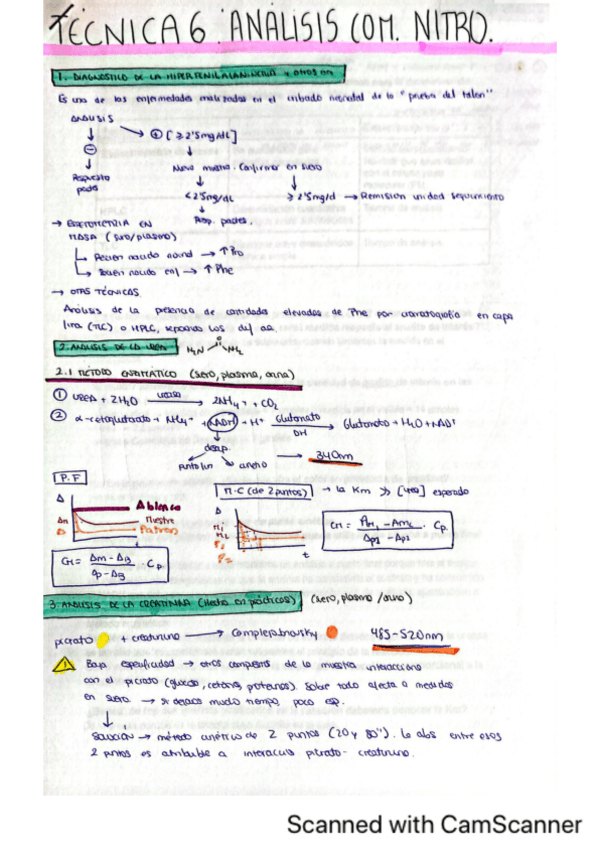 TÉCNICA 6 ANÁLISIS COM. NITRO.
1. DIAGNÓSTICO DE LA HIPERFENILALANINEMIA y otros
Es una de las enfermedades analizadas en el cribado neonatal de la "prueba del talón"
ANÁLISIS
⊕ [≥ 2'5 mg/dL]
⊖
Respuesta
Nueva muestra. Confirmar en suero
< 2'5mg/dL
≥ 2'5mg/d → Remisión unidad seguimiento
Resp. padres.
→ ESPECTROMETRÍA EN
MASA (suero/plasma)
Recién nacido normal → ↑ Pro
Recién nacido enf → ↑ Phe
→ OTRAS TÉCNICAS
Análisis de la presencia de cantidades elevadas de Phe por cromatografía en capa
fina (TLC) o HPLC, separando los dif aa.
2. ANÁLISIS DE LA UREA
O
H₂N NH₂
2.1 MÉTODO ENZIMÁTICO (suero, plasma, orina)
① UREA + 2H₂O ureasa → 2NH₄⁺ + CO₂
② α-cetoglutarato + NH₄⁺ + NADH + H⁺ Glutamato DH → Glutamato + H₂O + NAD⁺
desap.
punto fin
→ 340nm
P.F
Δ
A blanco
muestra
Patrón
Δm
t
Cm = Δm - ΔB / Δp - ΔB · Cp
M.C (de 2 puntos) → la Km >> [urea] esperado
Δ
t
Cm = Am₁ - Am₂ / Ap₁ - Ap₂ · Cp.
3 ANÁLISIS DE LA CREATININA (Hecho en prácticas) (suero, plasma /orina)
picrato + creatinina → Complejo Janovsky
485-520nm
Baja especificidad → otros compuestos de la muestra interacciona
con el picrato (glucosa, cetonas, proteínas). Sobre todo afecta a medidas
en suero. → si dejas mucho tiempo, poco esp.
SOLUCIÓN → método cinético de 2 puntos (20 y 80''). La abs entre esos
2 puntos es atribuible a interacción picrato - creatinina.
Scanned with CamScanner